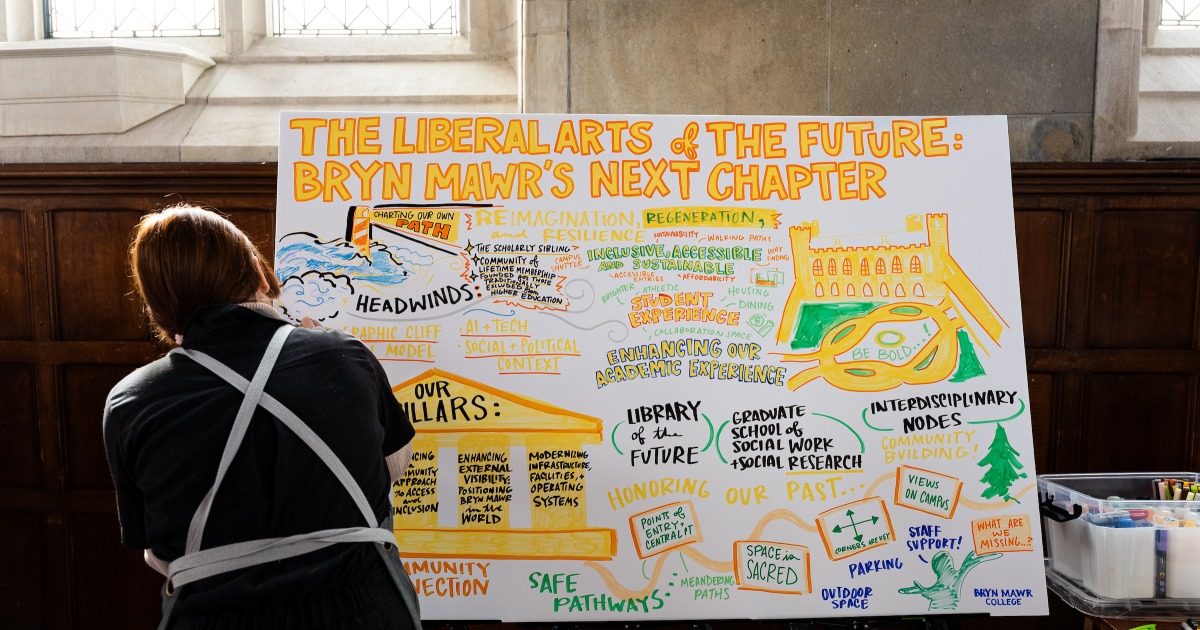 THE LIBERAL ARTS of THE FUTURE:
BRYN MAWR'S NEXT CHAPTER
CHARTING OUR OWN
PATH
REIMAGINATION, REGENERATION,
and RESILIENCE
THE SCHOLARLY SIBLING
COMMUNITY of
LIFETIME MEMBERSHIP
FOUNDED for THOSE
TRADITIONALLY
EXCLUDED from
HIGHER EDUCATION
HEADWINDS:
GRAPHIC CLIFF
MODEL
• AI + TECH
• SOCIAL + POLITICAL
CONTEXT
CAMPUS
SHUTTLE
SUSTAINABILITY
WALKING PATHS
INCLUSIVE, ACCESSIBLE
AND SUSTAINABLE
WAY
FINDING
ACCESSIBLE
ENTRIES
AFFORDABILITY
BRIGHTER
ATHLETIC
HOUSING
STUDENT
EXPERIENCE
DINING
COLLABORATION SPACE
ENHANCING OUR
ACADEMIC EXPERIENCE
BE BOLD...!
OUR
ILLARS:
CING
MMUNITY
APPROACH
TO ACCESS
and
INCLUSION
ENHANCING
EXTERNAL
VISIBILITY:
POSITIONING
BRYN MAWR
in the
WORLD
MODERNIZING
INFRASTRUCTURE,
FACILITIES, +
OPERATING
SYSTEMS
MMUNITY
NECTION
LIBRARY
of the
FUTURE
GRADUATE
SCHOOL of
SOCIAL WORK
+ SOCIAL RESEARCH
INTERDISCIPLINARY
NODES
COMMUNITY
BUILDING!
HONORING OUR PAST...
POINTS of
ENTRY +
CENTRAL PT
SPACE is
SACRED
CORNERS ARE KEY
VIEWS
ON CAMPUS
WHAT ARE
WE
MISSING...?
SAFE
PATHWAYS
MEANDERING
PATHS
STAFF
SUPPORT!
PARKING
OUTDOOR
SPACE
BRYN MAWR
COLLEGE